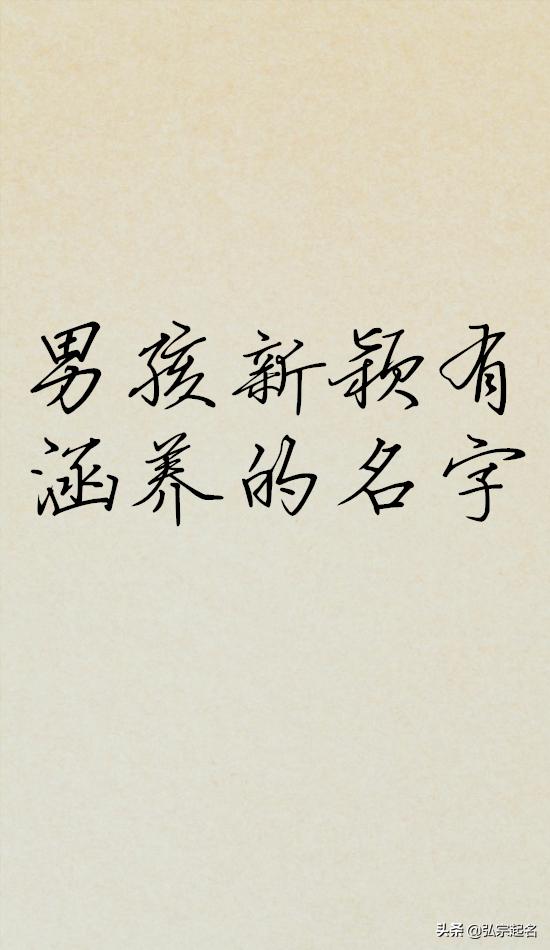 男孩新颖有
涵养的名字
头条 @弘宗起名